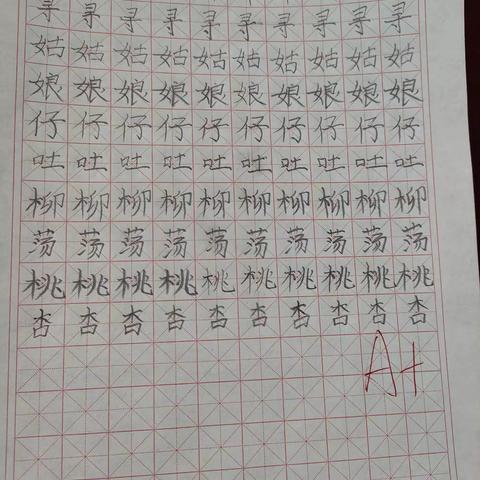 寻寻寻寻寻寻寻寻寻寻
姑姑姑姑姑姑姑姑姑姑
娘娘娘娘娘娘娘娘娘娘
仔仔仔仔仔仔仔仔仔仔
吐吐吐吐吐吐吐吐吐吐
柳柳柳柳柳柳柳柳柳柳
荡荡荡荡荡荡荡荡荡荡
桃桃桃桃桃桃桃桃桃桃
杏杏杏杏杏杏杏杏杏杏
A+